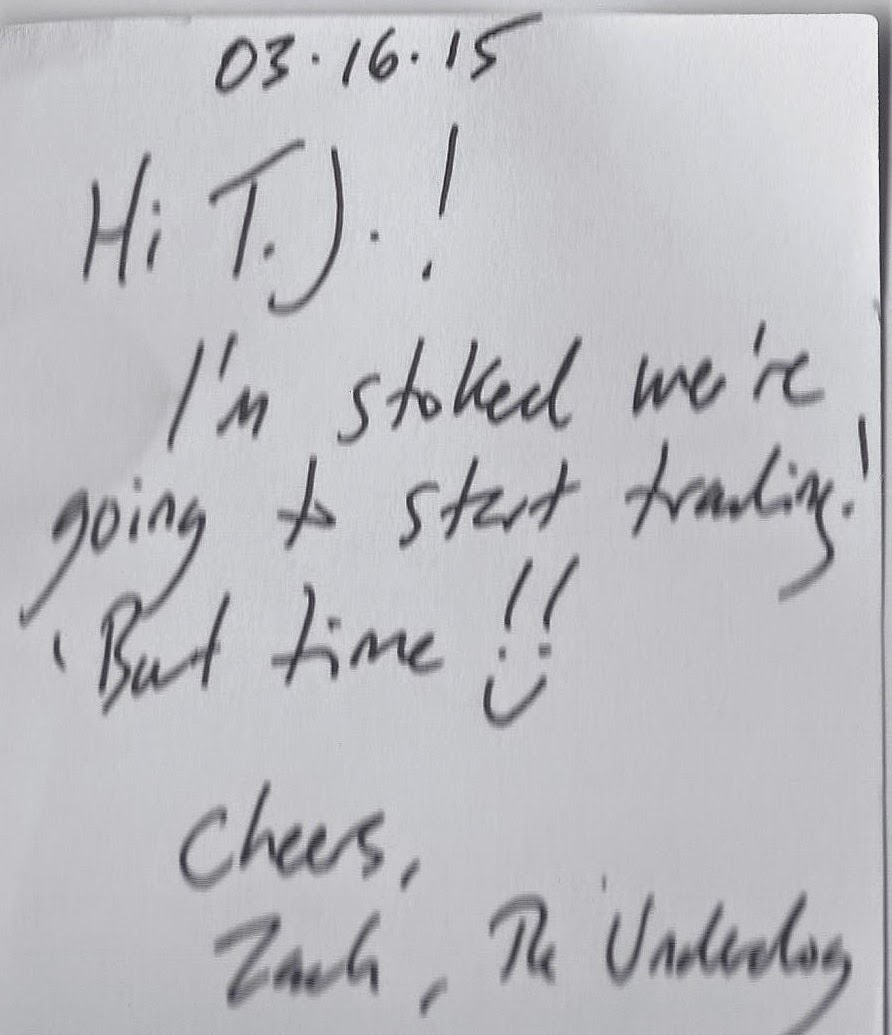 03.16.15
Hi T.J.!
I'm stoked we're
going to start trading!
'Bout time !!
Cheers,
Zach, The Underdog